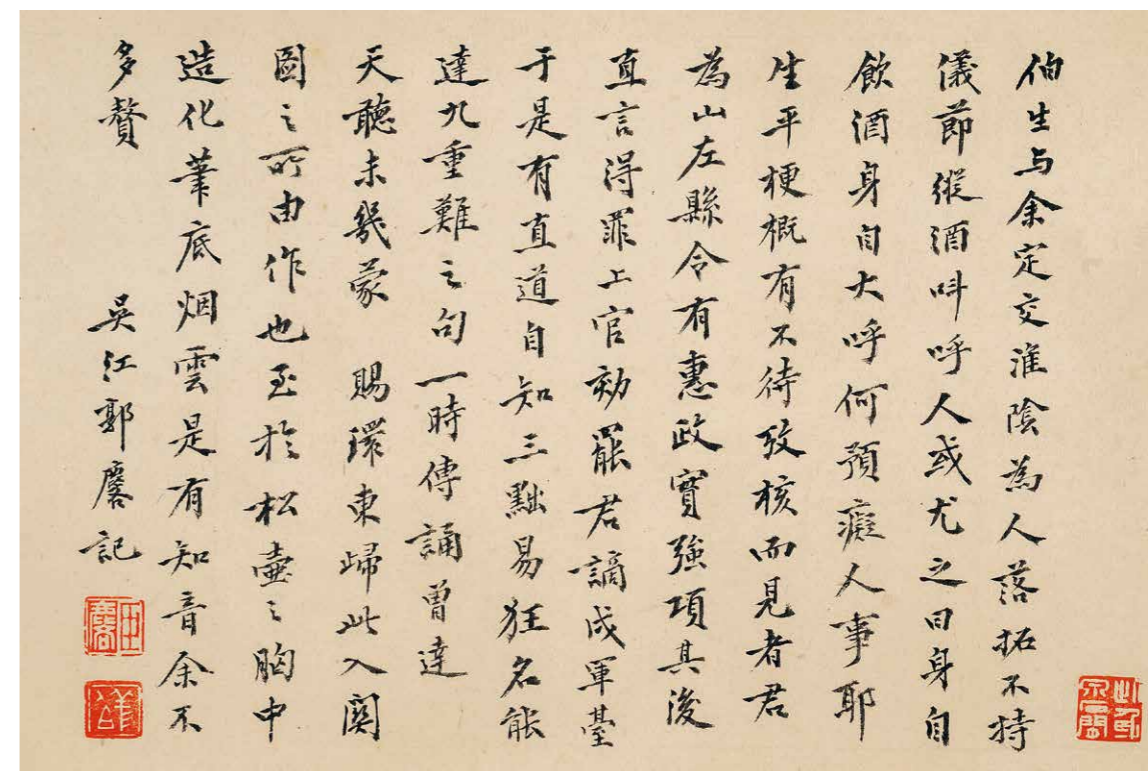 伯生与余定交淮陰為人落拓不持
儀節縱酒叫呼人或尤之曰身自
飲酒身自大呼何預癡人事耶
生平梗概有不待攷核而見者君
為山左縣令有惠政實強項其後
直言得罪上官劾罷君謫戍軍臺
于是有直道自知三黜易狂名能
達九重難之句一時傳誦曽達
天聽未幾蒙 賜環東歸此入關
圖之所由作也至於松壺之胸中
造化筆底烟雲是有知音余不
多贅
吳江郭麐記